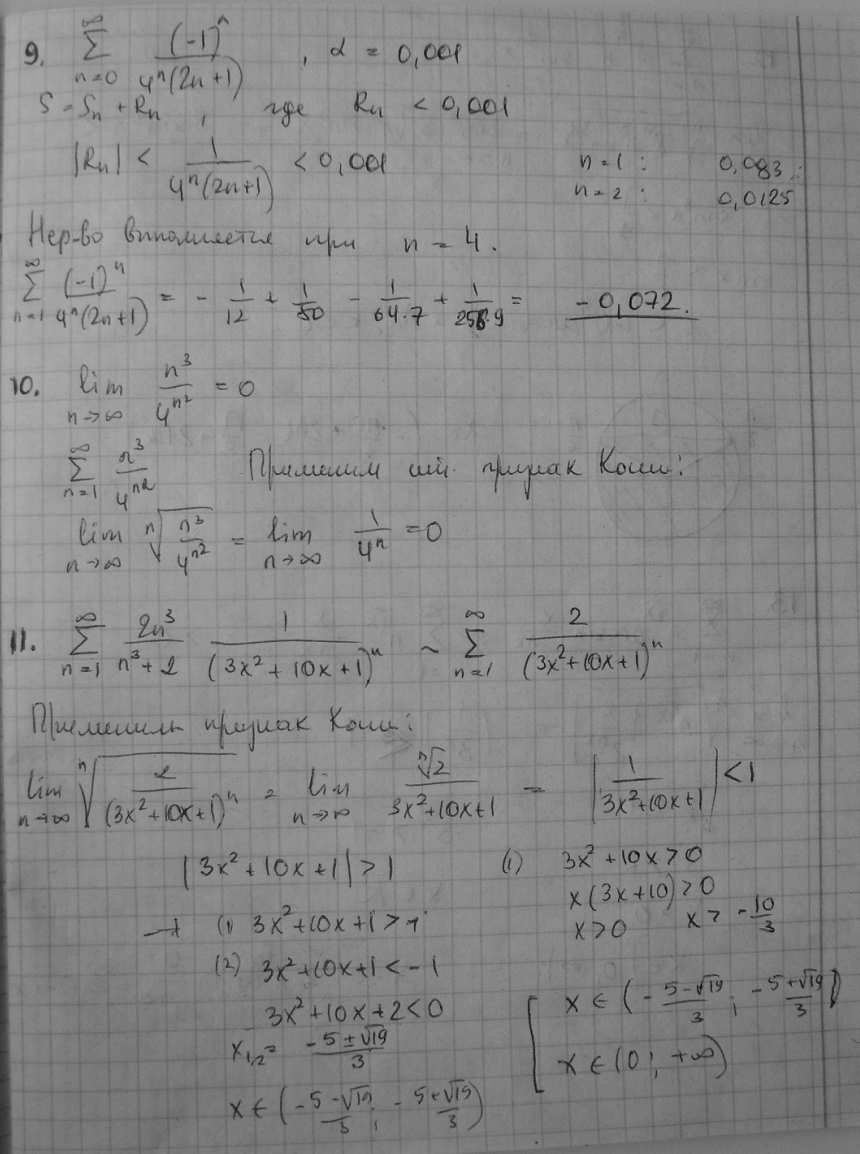 9. ∑_{n=0}^{∞} (-1)^n / 4^n(2n+1) , α = 0,001
S = S_n + R_n , где R_n < 0,001
|R_n| < 1 / 4^n(2n+1) < 0,001
n=1 : 0,083
n=2 : 0,0125
Нер-во выполняется при n = 4.
∑_{n=1}^{∞} (-1)^n / 4^n(2n+1) = - 1/12 + 1/80 - 1/64·7 + 1/256·9 = - 0,072.
10. lim_{n→∞} n^3 / 4^{n^2} = 0
∑_{n=1}^{∞} n^3 / 4^{n^2} Применим признак Коши:
lim_{n→∞} ⁿ√(n^3 / 4^{n^2}) = lim_{n→∞} 1 / 4^n = 0
11. ∑_{n=1}^{∞} 2n^3 / n^3+2 · 1 / (3x^2+10x+1)^n ~ ∑_{n=1}^{∞} 2 / (3x^2+10x+1)^n
Применим признак Коши:
lim_{n→∞} ⁿ√(2 / (3x^2+10x+1)^n) = lim_{n→∞} ⁿ√2 / 3x^2+10x+1 = |1 / 3x^2+10x+1| < 1
|3x^2+10x+1| > 1
→ (1) 3x^2+10x+1 > 1
(2) 3x^2+10x+1 < -1
3x^2+10x+2 < 0
x_{1,2} = -5±√19 / 3
x ∈ (-5-√19 / 3 ; -5+√19 / 3)
(1) 3x^2+10x > 0
x(3x+10) > 0
x > 0 x > -10/3
[ x ∈ (-5-√19 / 3 ; -5+√19 / 3)
x ∈ (0 ; +∞)